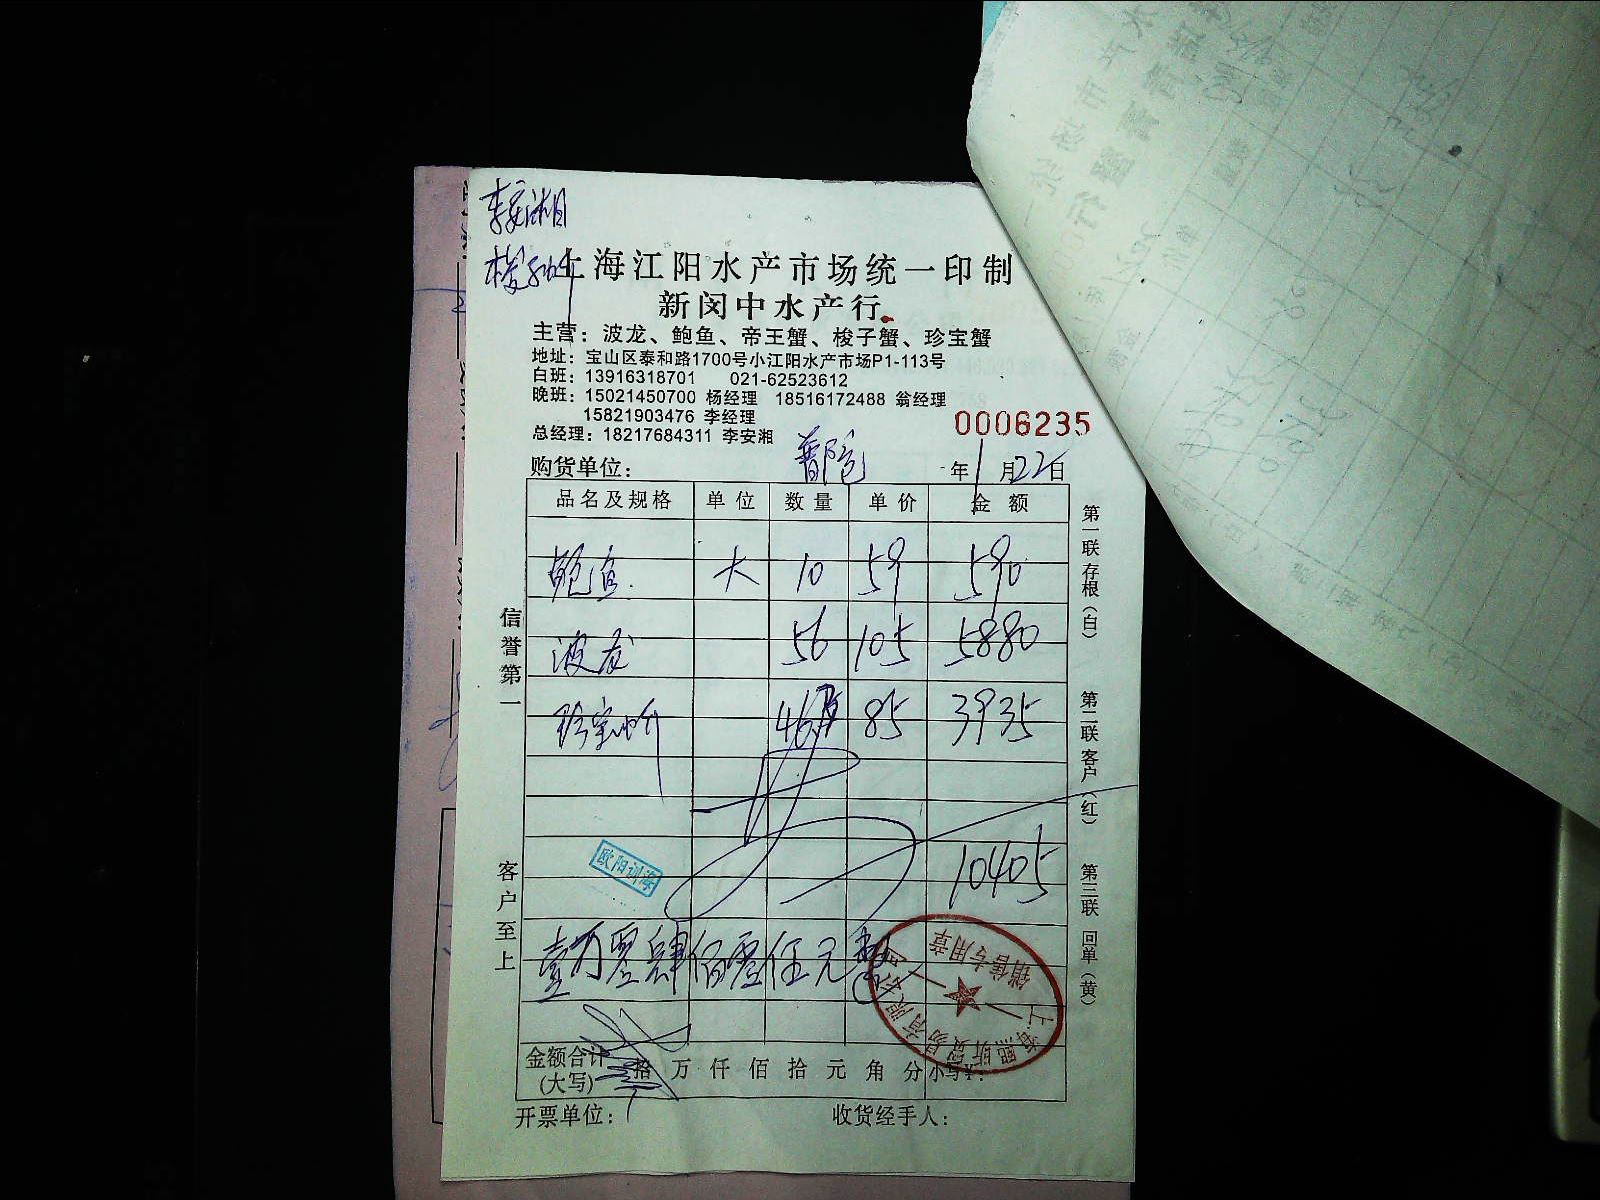 李安湘
梭子蟹
上海江阳水产市场统一印制
新闵中水产行
主营：波龙、鲍鱼、帝王蟹、梭子蟹、珍宝蟹
地址：宝山区泰和路1700号小江阳水产市场P1-113号
白班：13916318701 021-62523612
晚班：15021450700 杨经理 18516172488 翁经理
15821903476 李经理
总经理：18217684311 李安湘
0006235
购货单位： 普陀 年1月22日
品名及规格 单位 数量 单价 金额
鲍鱼 大 10 59 590
波龙 56 105 5880
珍宝 46 85 3935
10405
欧阳训海
壹万零肆佰零伍元整
金额合计 拾万仟佰拾元角分 小写¥：
(大写)
开票单位： 收货经手人：
信誉第一
客户至上
第一联 存根（白）
第二联 客户（红）
第三联 回单（黄）
销售专用章